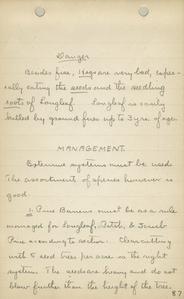 Danger
Besides fire, Hogs are very bad, espec-
ially eating the seeds and the seedling
roots of Longleaf. Longleaf is easily
killed by ground fires up to 3 yrs. of age.
MANAGEMENT.
Extensive systems must be used.
The assortment of species however is
good.
1. Pine Barrens must be as a rule
managed for Longleaf, Patch, & Scrub
Pine according to section. Clear cutting
with 5 seed trees per acre is the right
system. The seed are heavy and do not
blow further than the height of the tree.
87